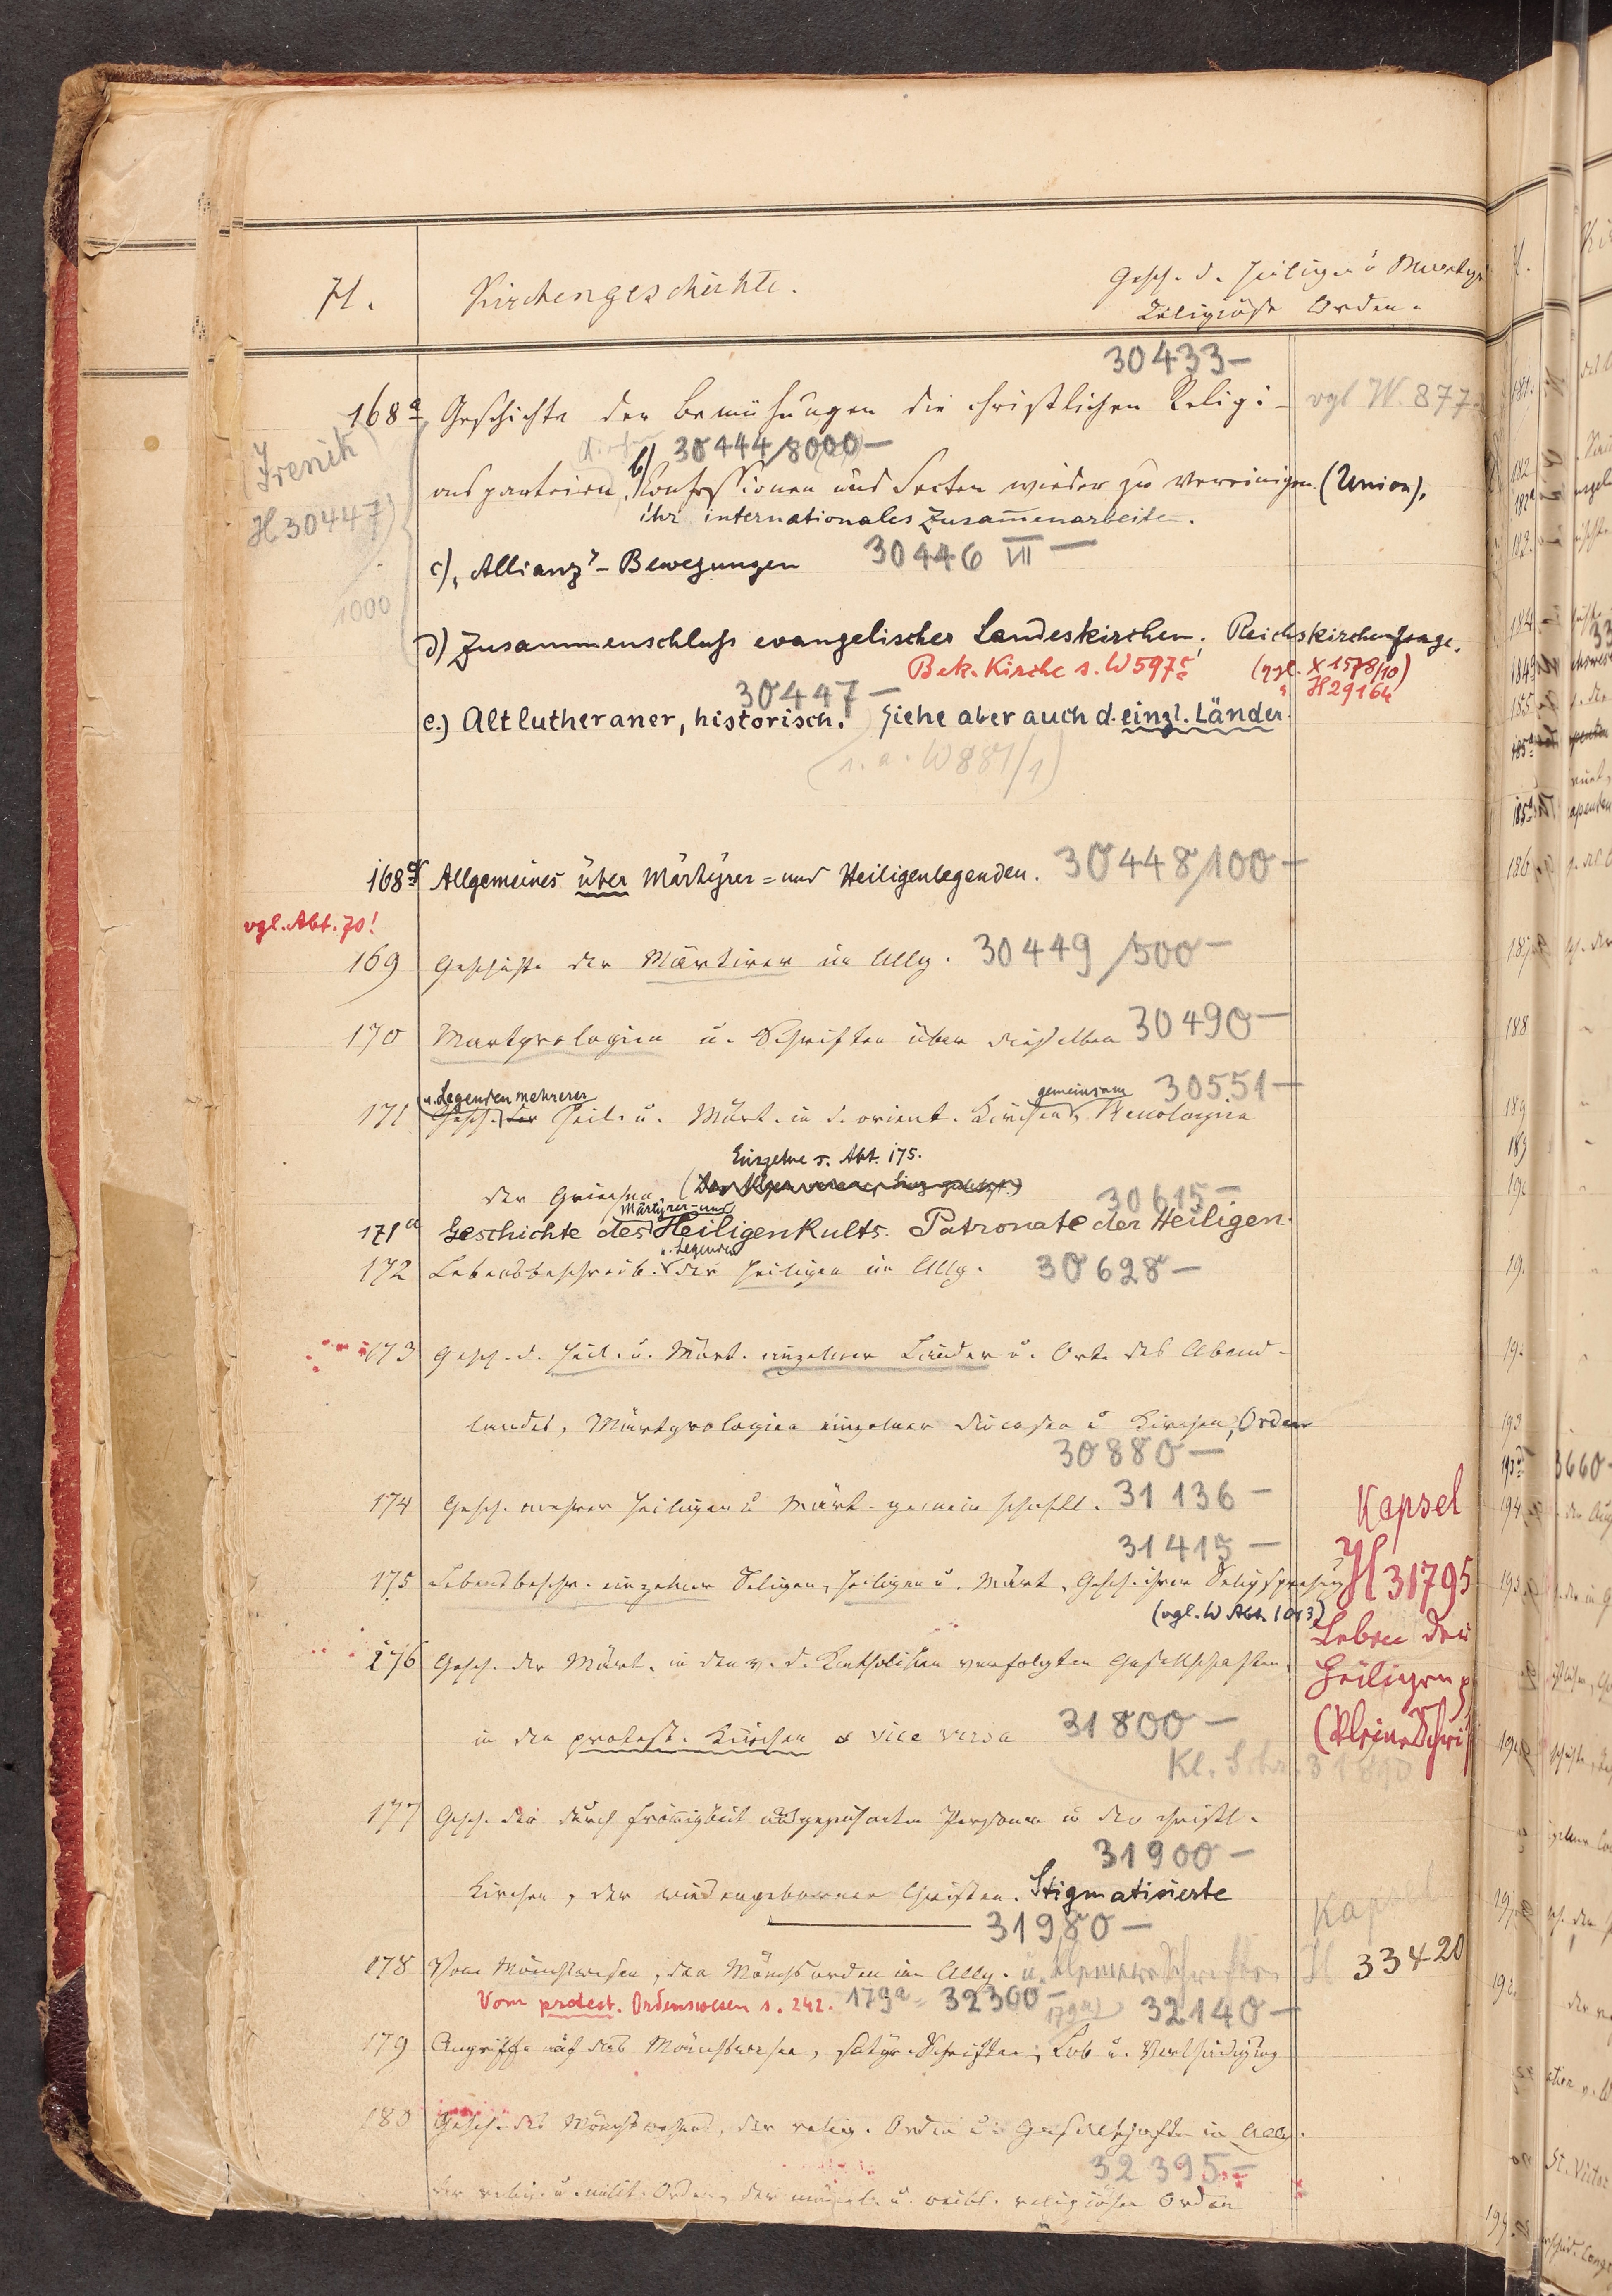 H. Kirchengeschichte. Gesch. d. Heiligen u. Martyr.
Religiöse Orden.
30433 —
168a Geschichte der Bemühungen die christlichen Religi- vgl W. 877.
b) 30444/8000 —
onsparteien, Konfessionen und Secten wieder zu vereinigen (Union).
ihr internationales Zusam̄enarbeiten.
Irenik
H 30447
1000
c) „Allianz"-Bewegungen 30446 VII —
d) Zusammenschluss evangelischer Landeskirchen, Reichskirchenfrage.
Bek. Kirche s. W 597c (vgl. X 1578/10)
" H 29164
30447 —
e.) Altlutheraner, historisch. Siehe aber auch d. einzl. Länder.
(s. a. W 881/1)
168 Allgemeines über Märtyrer= und Heiligenlegenden. 30448/100 —
vgl. Abt. 70!
169 Geschichte der Märtirer im Allg. 30449/500 —
170 Martyrologien u. Schriften über dieselben 30490 —
u. Legenden mehrerer gemeinsam 30551 —
171 Gesch. der Heil. u. Märt. in d. orient. Kirchen, Menologien
Einzelne s. Abt. 175.
der Griechen. 30615 —
Märtyrer- und
171a Geschichte des Heiligenkults. Patronate der Heiligen.
u. Legenden
172 Lebensbeschreib. der Heiligen im Allg. 30628 —
173 Gesch. d. Heil. u. Märt. einzelner Länder u. Orte des Abend-
landes, Märtyrologien einzelner Diöcesen u. Kirchen, Orden
30880 —
174 Gesch. mehrer Heiligen u. Märt. gemeinschaftl. 31136 —
31415 —
175 Lebensbeschr. einzelner Seligen, Heiligen u. Märt, Gesch. ihrer Seligsprechung
(vgl. W Abt. 1013)
Kapsel
H 31795
Leben der
Heiligen
(kleine Schri
176 Gesch. der Märt. in den v. d. Katholiken verfolgten Gesellschaften,
in den protest. Kirchen & vice versa 31800 —
Kl. Schr. 31890
177 Gesch. der durch Frömmigkeit ausgezeichneten Personen in der christl.
31900 —
Kirchen, der wiedergebornen Christen. Stigmatisierte
31980 —
178 Vom Mönchswesen, den Mönchsorden im Allg. u. kleinere Schriften
Kapsel
H 33420
Vom protest. Ordenswesen s. 242. 179a = 32300 — 179a) 32140 —
179 Angriffe auf das Mönchswesen, satyr. Schriften, Lob u. Vertheidigung
180 Gesch. des Mönchswesens, der relig. Orden u. Gesellschaften im Allg.
32395 —
der relig. u. milit. Orden, der männl. u. weibl. religiösen Orden